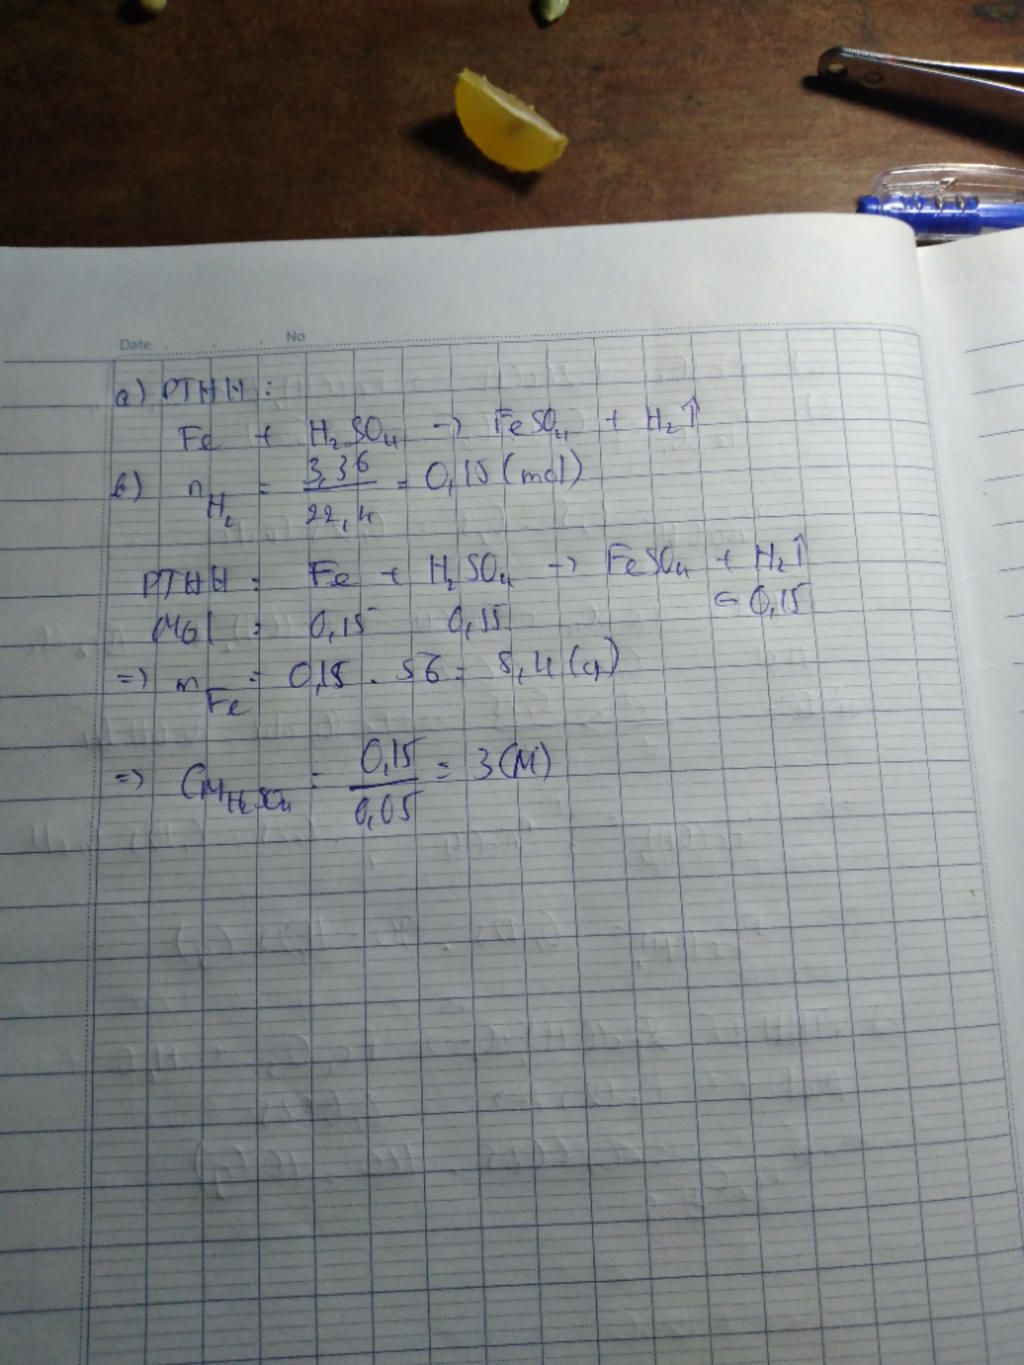 Date . . . No
a) PTHH :
Fe + H₂SO₄ → FeSO₄ + H₂↑
b) nH₂ = 3,36 / 22,4 = 0,15 (mol)
PTHH : Fe + H₂SO₄ → FeSO₄ + H₂↑
Mol : 0,15 0,15 ← 0,15
=> mFe = 0,15 . 56 = 8,4 (g)
=> CM H₂SO₄ = 0,15 / 0,05 = 3 (M)